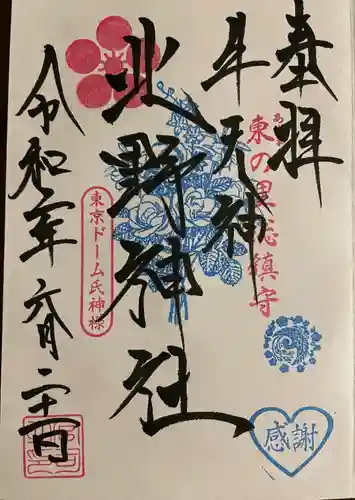 奉拝
東の里 鎮守
牛天神
北野神社
東京ドーム氏神様
令和元年 六月 二十日
感謝